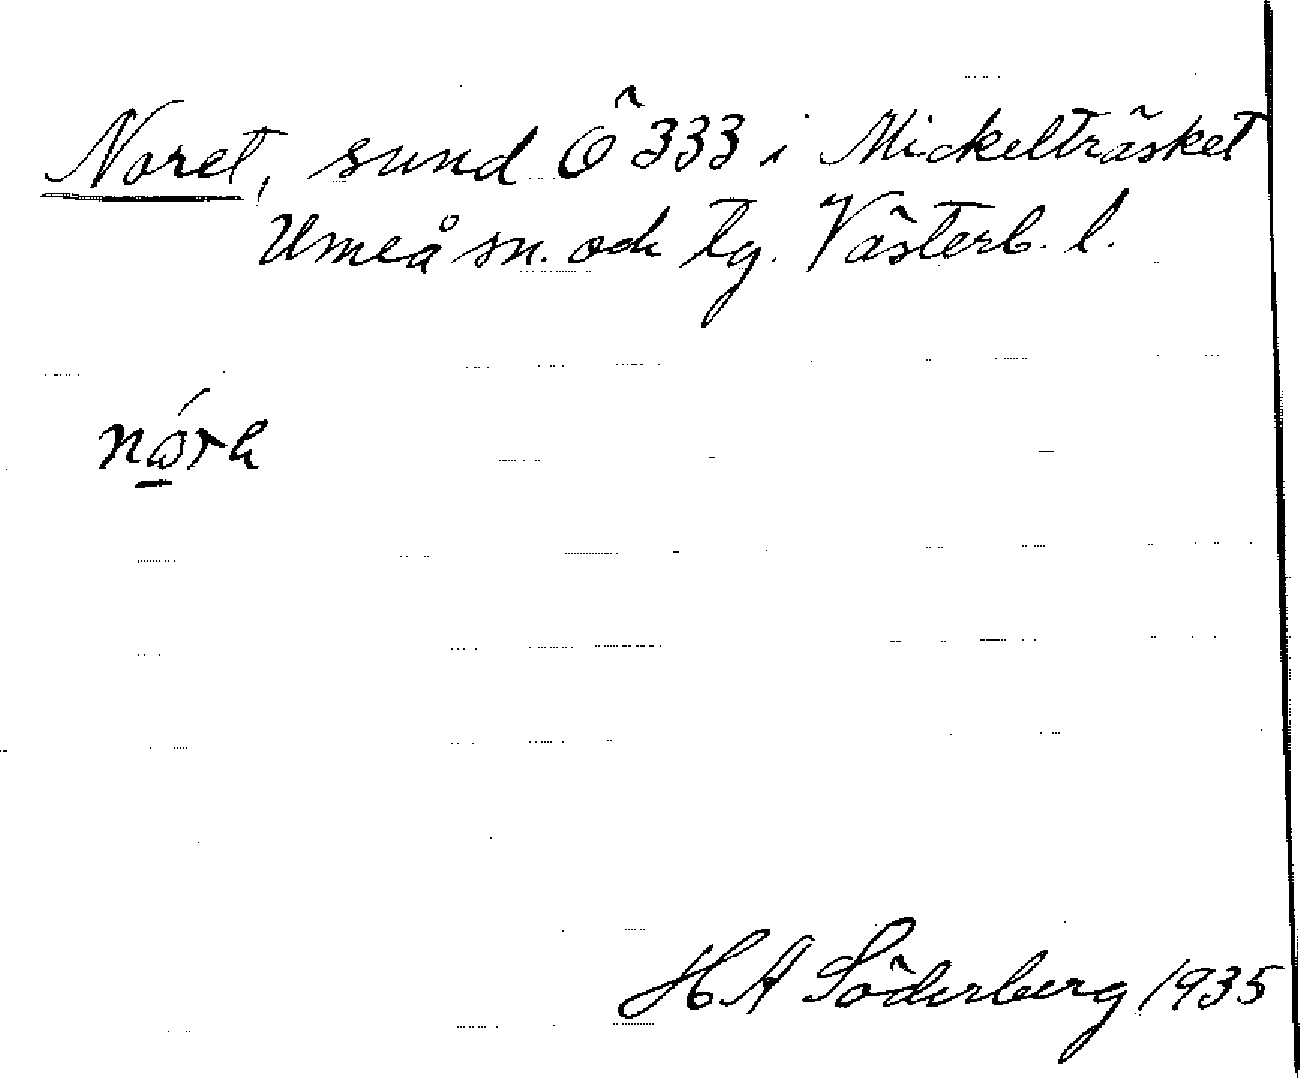 Noret, sund Ö 333 i Mickelträsket
Umeå sn. och tg. Västerb. l.
H A Söderberg 1935